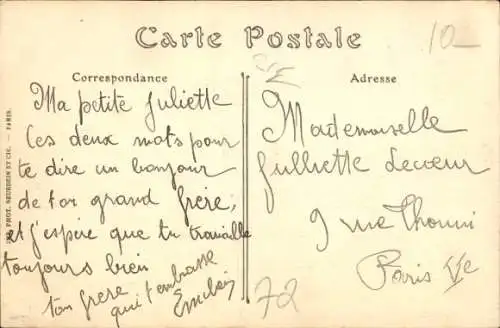 Carte Postale
Correspondance
Adresse
Ma petite Juliette
Ces deux mots pour
te dire un bonjour
de ton grand frère,
et j'espère que tu travaille
toujours bien
ton frere
qui t'embrasse
Mademoiselle
Julliette Lecœur
9 rue Thouin
Paris Ve
10
72
PHOT. NEURDEIN ET CIE. — PARIS.